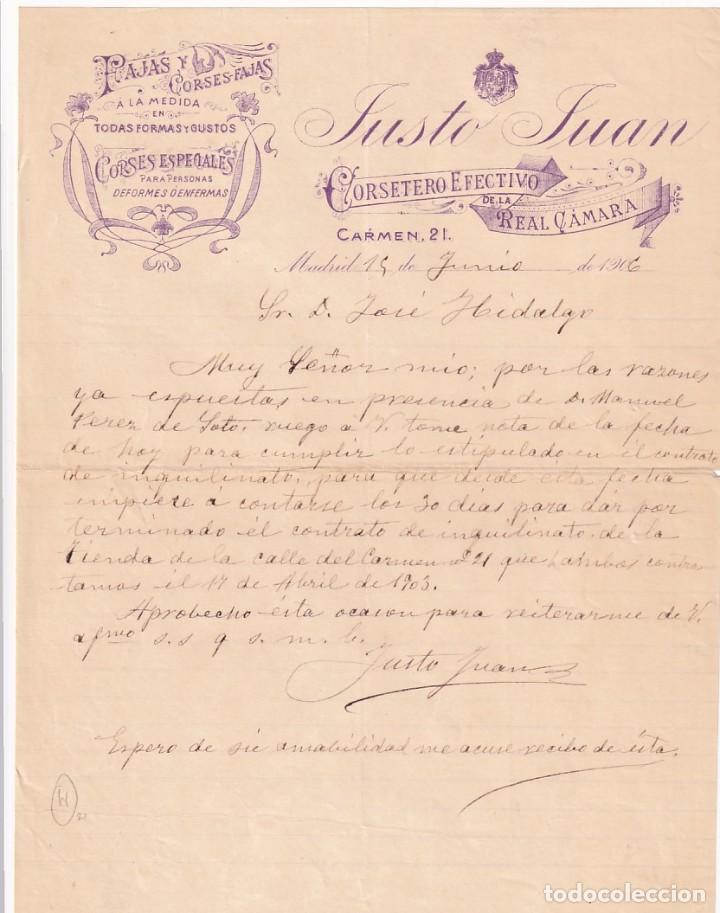 FAJAS Y
CORSES-FAJAS
Á LA MEDIDA
EN
TODAS FORMAS Y GUSTOS
CORSES ESPECIALES
PARA PERSONAS
DEFORMES Ó ENFERMAS
Justo Juan
CORSETERO EFECTIVO
DE LA
REAL CÁMARA
CARMEN, 21.
Madrid 15 de Junio de 1906
Sr. D. José Hidalgo
Muy Señor mio; por las razones
ya espuestas en presencia de D. Manuel
Perez de Soto, ruego a V. tome nota de la fecha
de hoy para cumplir lo estipulado en el contrato
de inquilinato, para que desde esta fecha
empiece á contarse los 30 dias para dár por
terminado él contrato de inquilinato de la
tienda de la calle del Carmen nº 21 que ambos contra
tamos él 17 de Abril de 1903.
Aprobecho ésta ocasion para reiterarme de V.
afmo s. s q s. m. b.
Justo Juan
Espero de su amabilidad me acuse recibo de ésta.
todocoleccion